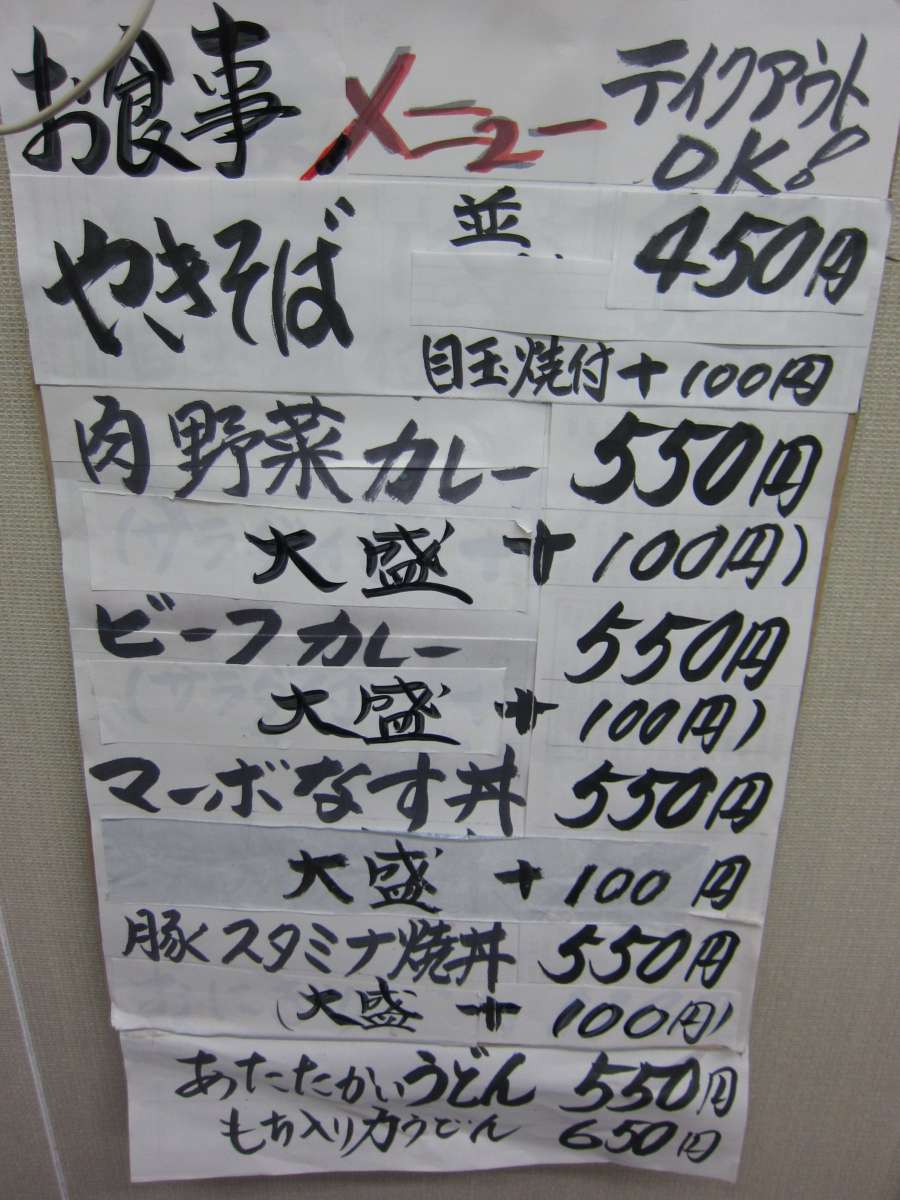 お食事 メニュー テイクアウト
OK!
やきそば 並 450円
目玉焼付+100円
肉野菜カレー 550円
大盛+100円)
ビーフカレー 550円
大盛+100円)
マーボなす丼 550円
大盛+100円
豚スタミナ焼丼 550円
(大盛+100円)
あたたかいうどん 550円
もち入り力うどん 650円